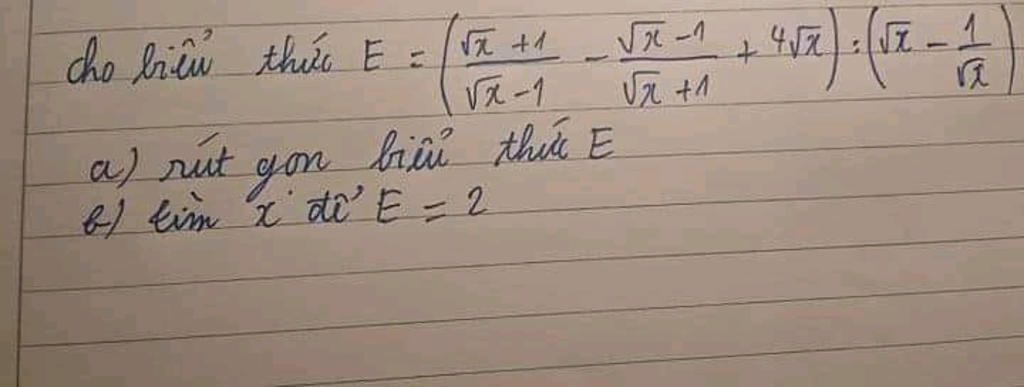 cho biểu thức E = ( (√x +1)/(√x -1) - (√x -1)/(√x +1) + 4√x ) : ( √x - 1/√x )
a) rút gọn biểu thức E
b) tìm x để E = 2